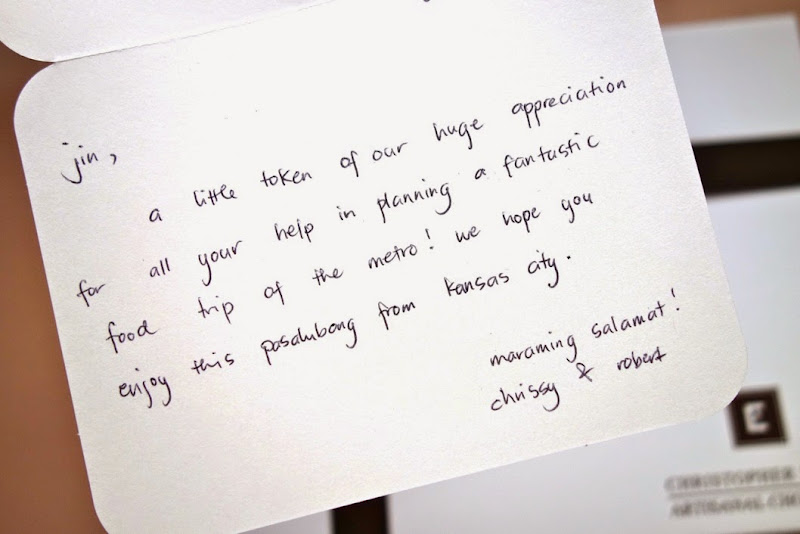 jin,
a little token of our huge appreciation
for all your help in planning a fantastic
food trip of the metro! we hope you
enjoy this pasalubong from kansas city.
maraming salamat!
chrissy & robert
CHRISTOPHER
ARTISANAL CH